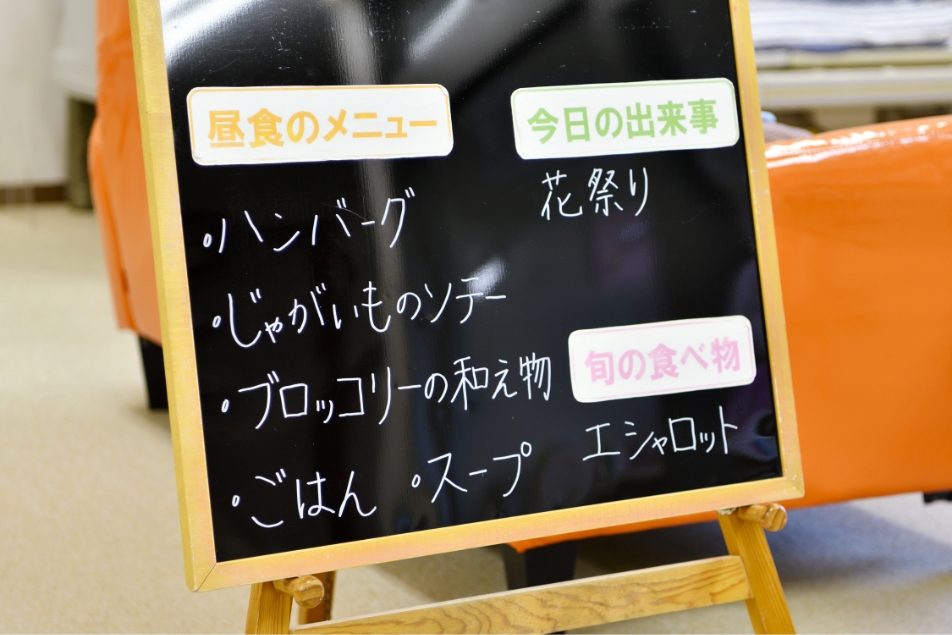 昼食のメニュー
・ハンバーグ
・じゃがいものソテー
・ブロッコリーの和え物
・ごはん ・スープ
今日の出来事
花祭り
旬の食べ物
エシャロット